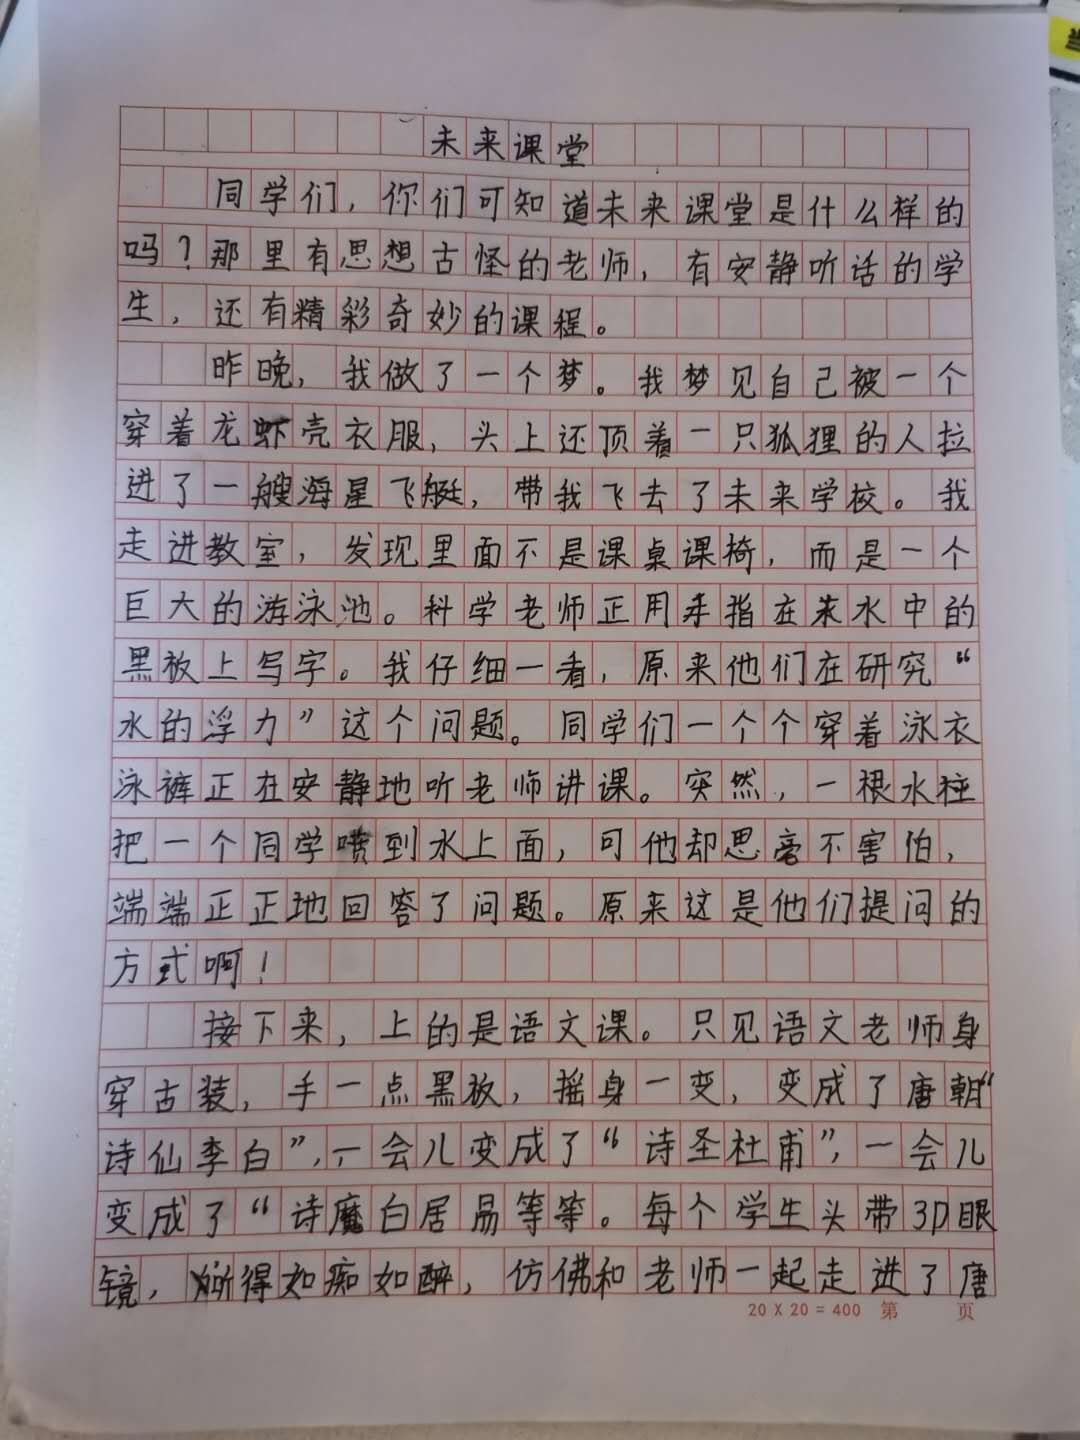 未来课堂
同学们，你们可知道未来课堂是什么样的
吗？那里有思想古怪的老师，有安静听话的学
生，还有精彩奇妙的课程。
昨晚，我做了一个梦。我梦见自己被一个
穿着龙虾壳衣服，头上还顶着一只狐狸的人拉
进了一艘海星飞艇，带我飞去了未来学校。我
走进教室，发现里面不是课桌课椅，而是一个
巨大的游泳池。科学老师正用手指在水中的
黑板上写字。我仔细一看，原来他们在研究“
水的浮力”这个问题。同学们一个个穿着泳衣
泳裤正在安静地听老师讲课。突然，一根水柱
把一个同学喷到水上面，可他却思毫不害怕，
端端正正地回答了问题。原来这是他们提问的
方式啊！
接下来，上的是语文课。只见语文老师身
穿古装，手一点黑板，摇身一变，变成了唐朝“
诗仙李白”，一会儿变成了“诗圣杜甫”，一会儿
变成了“诗魔白居易等等。每个学生头带3D眼
镜，听得如痴如醉，仿佛和老师一起走进了唐
20 X 20 = 400 第 页